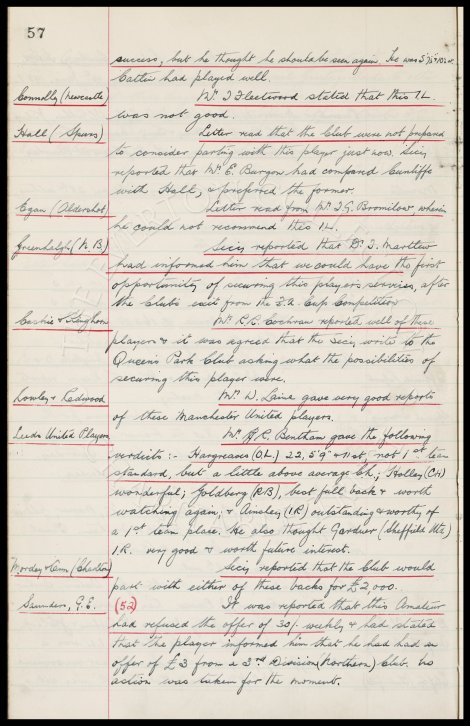 57
success, but he thought he should be seen again. He was 5'8" &
Catlin had played well.
Connolly (Newcastle) Mr. J. Fleetwood stated that this I.L.
was not good.
Hall (Spurs) Letter read that the Club were not prepared
to consider parting with this player just now. Secy
reported that Mr. E. Burgon had compared Cunliffe
with Hall, & preferred the former.
Egan (Aldershot) Letter read from Mr. J.G. Bromilow, wherein
he could not recommend this I.H.
Greenhalgh (N.B.) Secy reported that Mr. J. Martlew
had informed him that we could have the first
opportunity of securing this players services, after
the Club's exit from the F.A. Cup Competition
& Mr. R.R. Cochran reported well of these
players & it was agreed that the Secy write to the
Queen's Park Club asking what the possibilities of
securing this player were.
Lowley & Redwood Mr. D. Laine gave very good reports
of these Manchester United players.
Leeds United Players Mr. R.C. Bentham gave the following
verdicts :- Hargreaves (O.L.) 22, 5'9" & 11 st, not 1st team
standard, but a little above average Ch.; Holley (C.H.)
wonderful; Goldberg (R.B), best full back & worth
watching again; & Ainsley (I.R) outstanding & worthy of
a 1st team place. He also thought Gardner (Sheffield Utd.)
I.R. very good & worth future interest.
Mordey & Cann (Charlton) Secy reported that the Club would
part with either of these backs for £2,000.
Saunders, G.E. (52) It was reported that this Amateur
had refused the offer of 30/- weekly & had stated
that the player informed him that he had had an
offer of £3 from a 3rd Division (Northern) Club. No
action was taken for the moment.